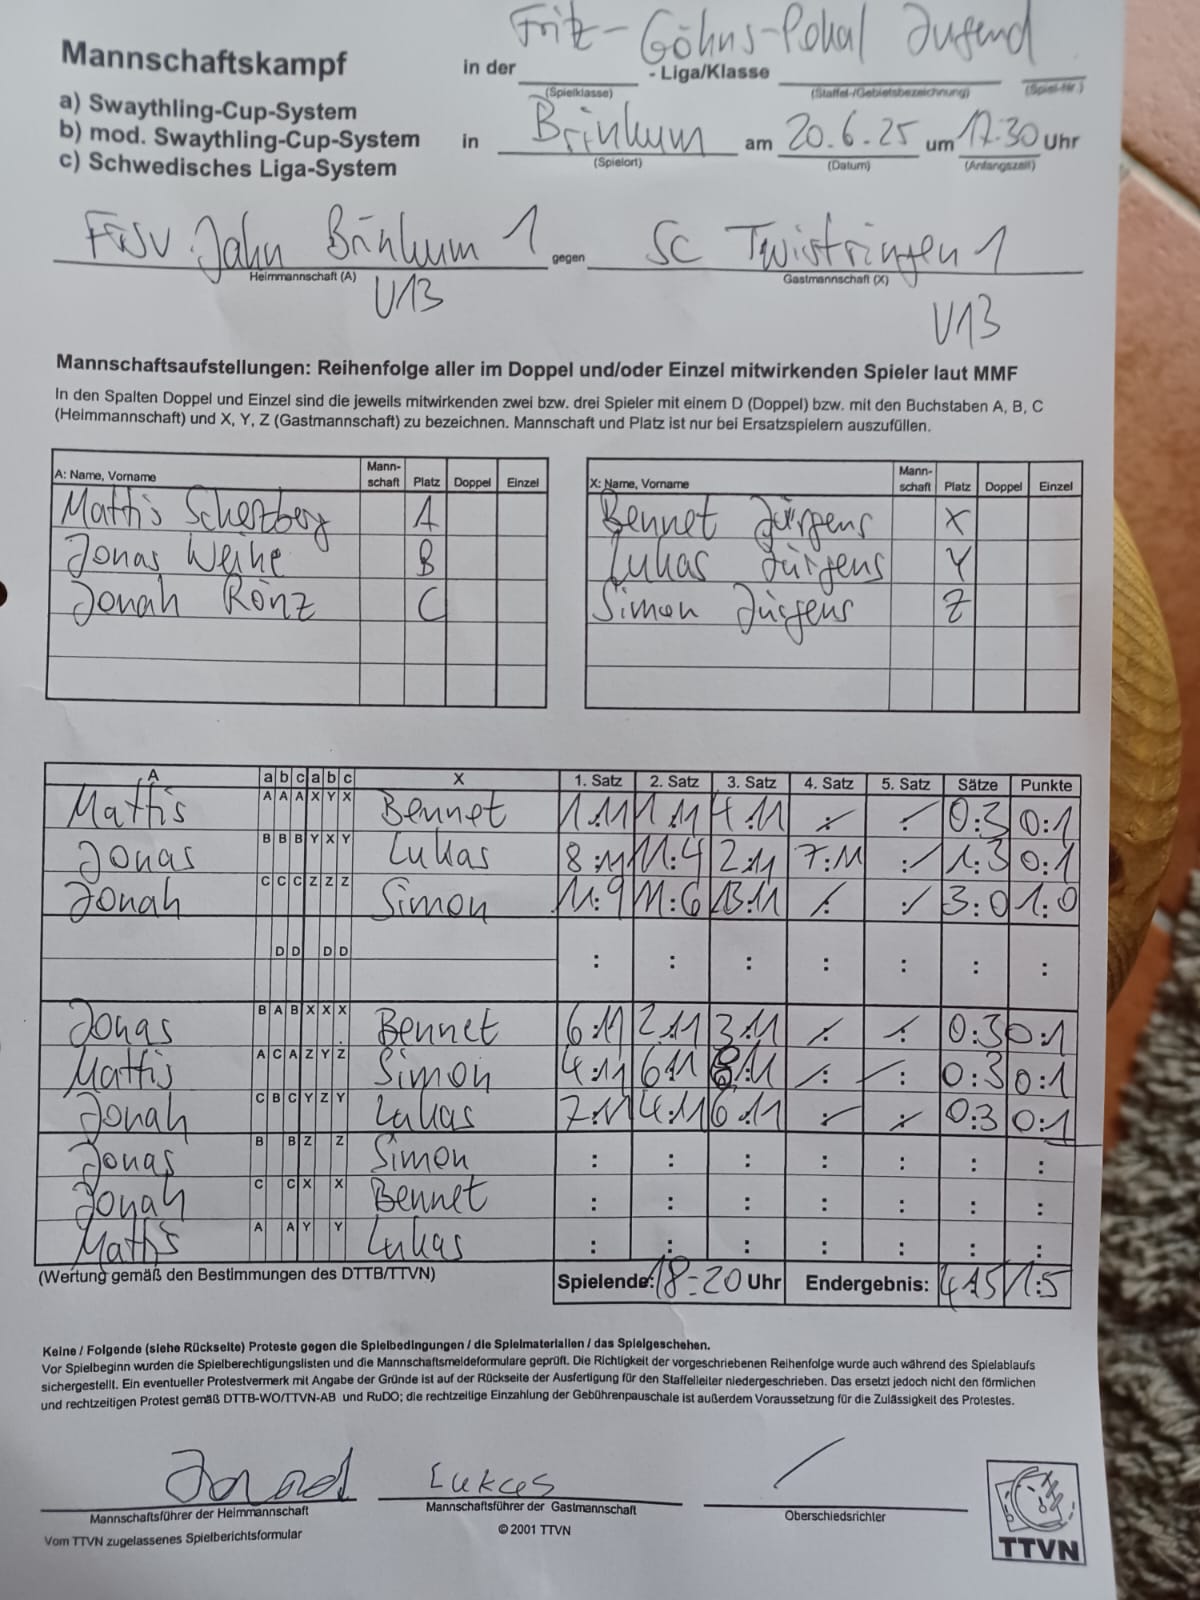 Fritz-Göhns-Pokal Jugend
Mannschaftskampf in der - Liga/Klasse
(Spielklasse) (Staffel-/Gebietsbezeichnung) (Spiel-Nr.)
a) Swaythling-Cup-System
b) mod. Swaythling-Cup-System in Brinkum am 20.6.25 um 17.30 Uhr
(Spielort) (Datum) (Anfangszeit)
c) Schwedisches Liga-System
FTSV Jahn Brinkum 1 gegen SC Twistringen 1
Heimmannschaft (A) Gastmannschaft (X)
U13 U13
Mannschaftsaufstellungen: Reihenfolge aller im Doppel und/oder Einzel mitwirkenden Spieler laut MMF
In den Spalten Doppel und Einzel sind die jeweils mitwirkenden zwei bzw. drei Spieler mit einem D (Doppel) bzw. mit den Buchstaben A, B, C
(Heimmannschaft) und X, Y, Z (Gastmannschaft) zu bezeichnen. Mannschaft und Platz ist nur bei Ersatzspielern auszufüllen.
A: Name, Vorname Mann-schaft Platz Doppel Einzel X: Name, Vorname Mann-schaft Platz Doppel Einzel
Mattis Scherzberg A Bennet Jürgens X
Jonas Weihe B Lukas Jürgens Y
Jonah Rönz C Simon Jürgens Z
A a b c a b c X 1. Satz 2. Satz 3. Satz 4. Satz 5. Satz Sätze Punkte
Mattis A A A X Y X Bennet 1:11 1:11 4:11 : : 0:3 0:1
Jonas B B B Y X Y Lukas 8:11 11:4 2:11 7:11 : 1:3 0:1
Jonah C C C Z Z Z Simon 11:9 11:6 13:11 : : 3:0 1:0
D D D D : : : : : : :
Jonas B A B X X X Bennet 6:11 2:11 3:11 : : 0:3 0:1
Mattis A C A Z Y Z Simon 4:11 6:11 8:11 : : 0:3 0:1
Jonah C B C Y Z Y Lukas 7:11 4:11 6:11 : : 0:3 0:1
Jonas B B Z Z Simon : : : : : : :
Jonah C C X X Bennet : : : : : : :
Mattis A A Y Y Lukas : : : : : : :
(Wertung gemäß den Bestimmungen des DTTB/TTVN) Spielende: 18-20 Uhr Endergebnis: 4:15 1:5
Keine / Folgende (siehe Rückseite) Proteste gegen die Spielbedingungen / die Spielmaterialien / das Spielgeschehen.
Vor Spielbeginn wurden die Spielberechtigungslisten und die Mannschaftsmeldeformulare geprüft. Die Richtigkeit der vorgeschriebenen Reihenfolge wurde auch während des Spielablaufs
sichergestellt. Ein eventueller Protestvermerk mit Angabe der Gründe ist auf der Rückseite der Ausfertigung für den Staffelleiter niedergeschrieben. Das ersetzt jedoch nicht den förmlichen
und rechtzeitigen Protest gemäß DTTB-WO/TTVN-AB und RuDO; die rechtzeitige Einzahlung der Gebührenpauschale ist außerdem Voraussetzung für die Zulässigkeit des Protestes.
Lukas
Mannschaftsführer der Heimmannschaft Mannschaftsführer der Gastmannschaft Oberschiedsrichter
Vom TTVN zugelassenes Spielberichtsformular © 2001 TTVN
TTVN